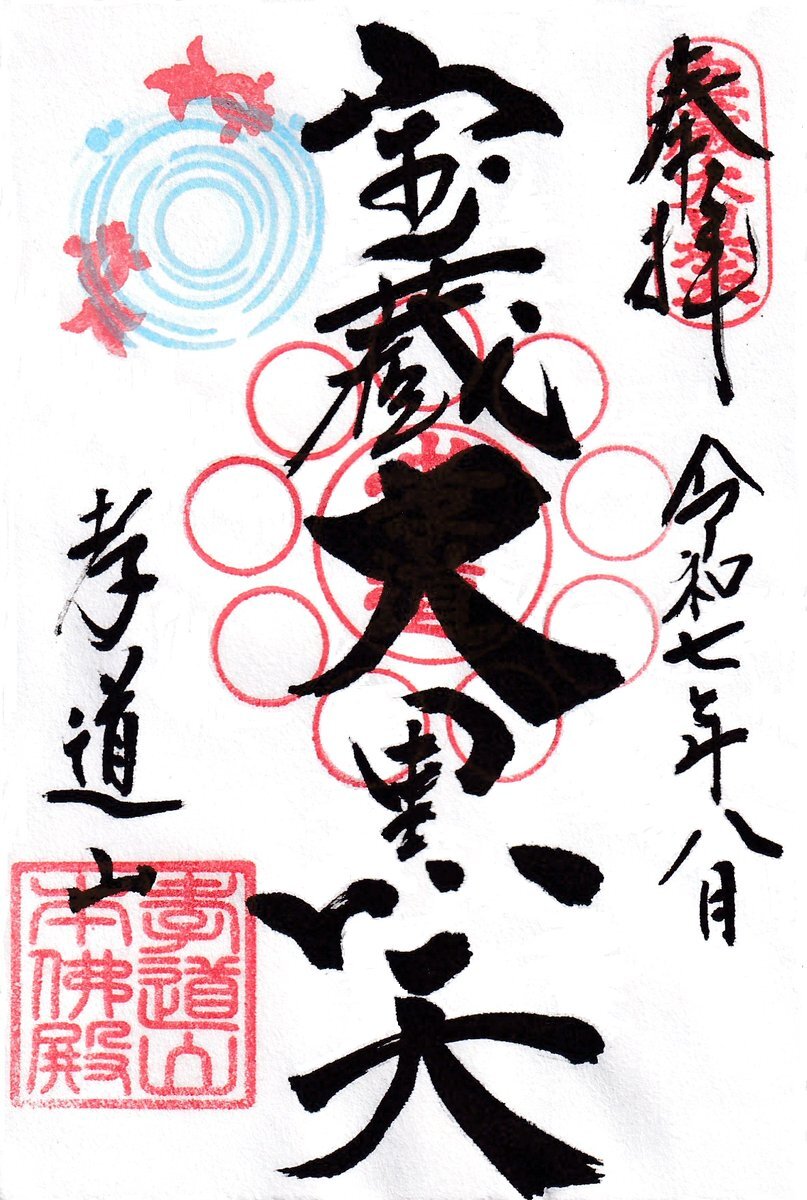 奉拝
令和七年八月
宝蔵大黒天
孝道山
孝道山
本佛殿